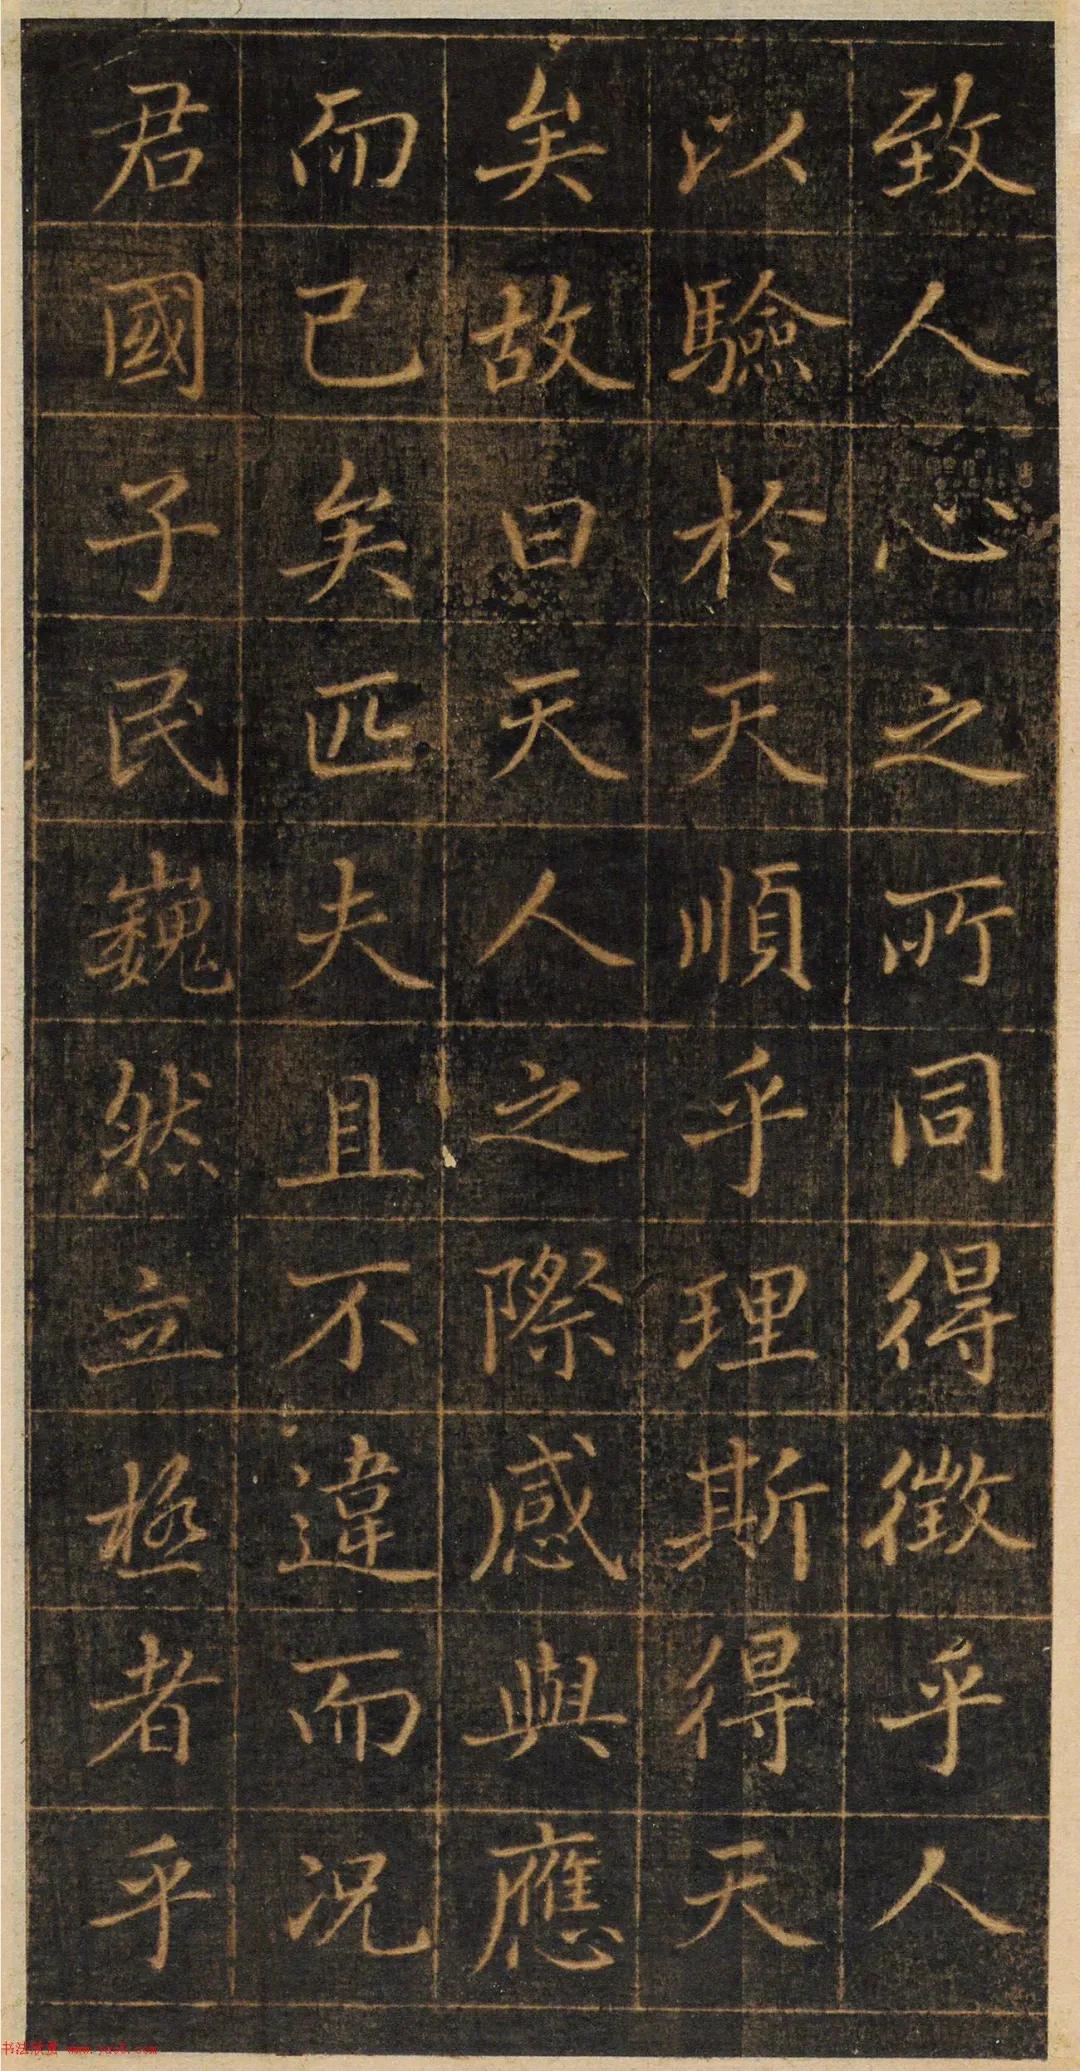 致人心之所同得徵乎人
以驗於天順乎理斯得天
矣故曰天人之際感與應
而已矣匹夫且不違而況
君國子民巍然立極者乎